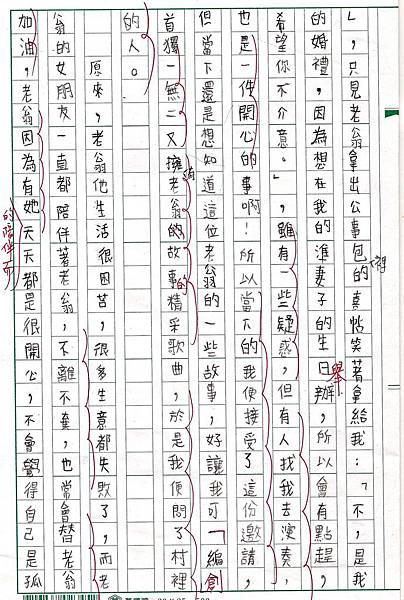 」,只見老翁拿出公事包的真帖笑著拿給我:「不,是我
裡
的婚禮,因為想在我的準妻子的生日辦,所以會有點趕,
舉
希望你不介意。」,雖有一些疑惑,但有人找我去演奏,
也是一件開心的事啊!所以當下的我便接受了這份邀請,
但當下還是想知道這位老翁的一些故事,好讓我可「編創
首獨一無二又擁老翁的故事的精采歌曲,於是我便問了村裡
有
的人。
原來,老翁他生活很困苦,很多生意都失敗了,而老
翁的女朋友一直都陪伴著老翁,不離不棄,也常會替老翁
加油,老翁因為有她天天都是很開心,不會覺得自己是孤
的陪伴而